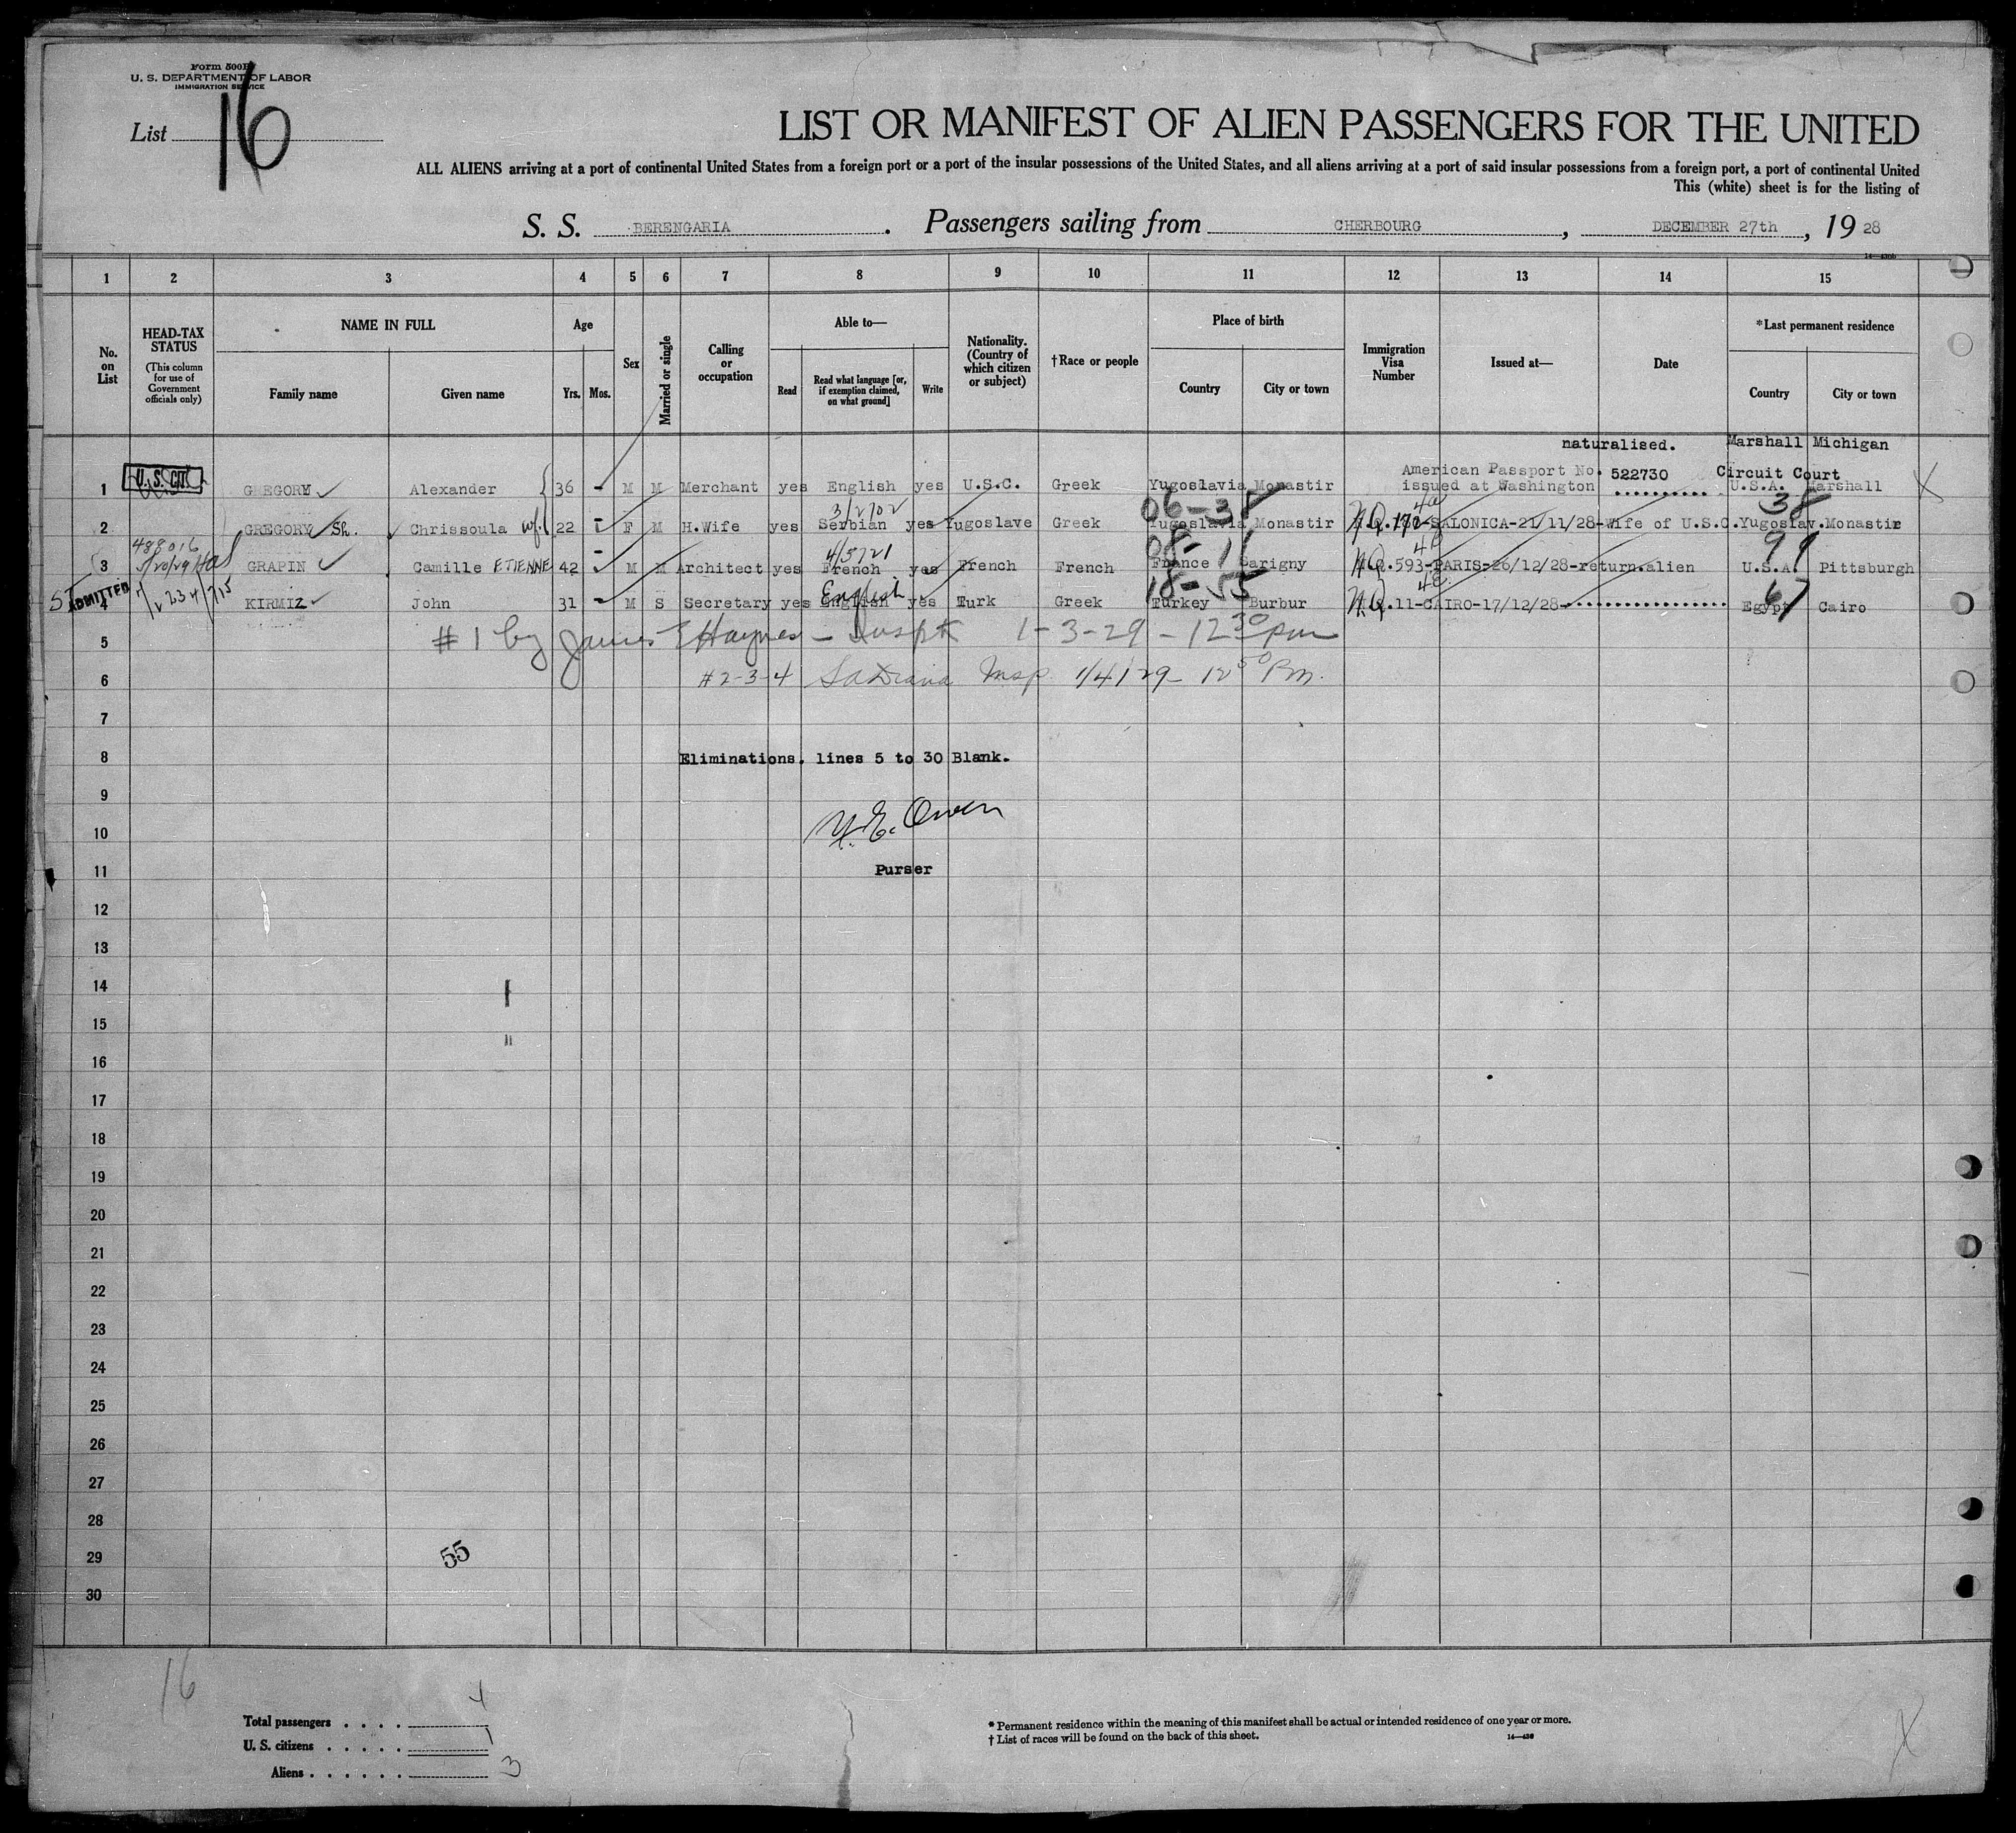 Form 500B
U. S. DEPARTMENT OF LABOR
IMMIGRATION SERVICE
List 16
LIST OR MANIFEST OF ALIEN PASSENGERS FOR THE UNITED
ALL ALIENS arriving at a port of continental United States from a foreign port or a port of the insular possessions of the United States, and all aliens arriving at a port of said insular possessions from a foreign port, a port of continental United
This (white) sheet is for the listing of
S. S. BERENGARIA. Passengers sailing from CHERBOURG, DECEMBER 27th, 19 28
1 2 3 4 5 6 7 8 9 10 11 12 13 14 15
No. on List
HEAD-TAX STATUS
(This column for use of Government officials only)
NAME IN FULL
Family name Given name
Age
Yrs. Mos.
Sex
Married or single
Calling or occupation
Able to—
Read Read what language [or, if exemption claimed, on what ground] Write
Nationality. (Country of which citizen or subject)
†Race or people
Place of birth
Country City or town
Immigration Visa Number
Issued at—
Date
*Last permanent residence
Country City or town
naturalised. Marshall Michigan
American Passport No. 522730 Circuit Court
1 U.S. CIT. GREGORY Alexander 36 - M M Merchant yes English yes U.S.C. Greek Yugoslavia Monastir issued at Washington U.S.A. Marshall
3/2702 06-38 4a 38
2 GREGORY Sh. Chrissoula wf. 22 F M H.Wife yes Serbian yes Yugoslave Greek Yugoslavia Monastir N.Q. 172-SALONICA-21/11/28-Wife of U.S.C. Yugoslav. Monastir
488016 4/5721 08-11 4b 99
3 5/20/29 GRAPIN Camille ETIENNE 42 - M M Architect yes French yes French French France Barigny N.Q. 593-PARIS-26/12/28-return.alien U.S.A. Pittsburgh
ADMITTED English 18-55 4e 67
4 KIRMIZ John 31 - M S Secretary yes English yes Turk Greek Turkey Burbur N.Q. 11-CAIRO-17/12/28- Egypt Cairo
5 #1 by James E Haynes - Inspt 1-3-29 - 12 30 pm
6 #2-3-4 Insp 1/4/29 - 12 50 Pm.
7
8 Eliminations. lines 5 to 30 Blank.
9
10 Owen
11 Purser
12
13
14
15
16
17
18
19
20
21
22
23
24
25
26
27
28
29 55
30
16
Total passengers . . . . 4
U. S. citizens . . . . . 1
Aliens . . . . . . 3
* Permanent residence within the meaning of this manifest shall be actual or intended residence of one year or more.
† List of races will be found on the back of this sheet.